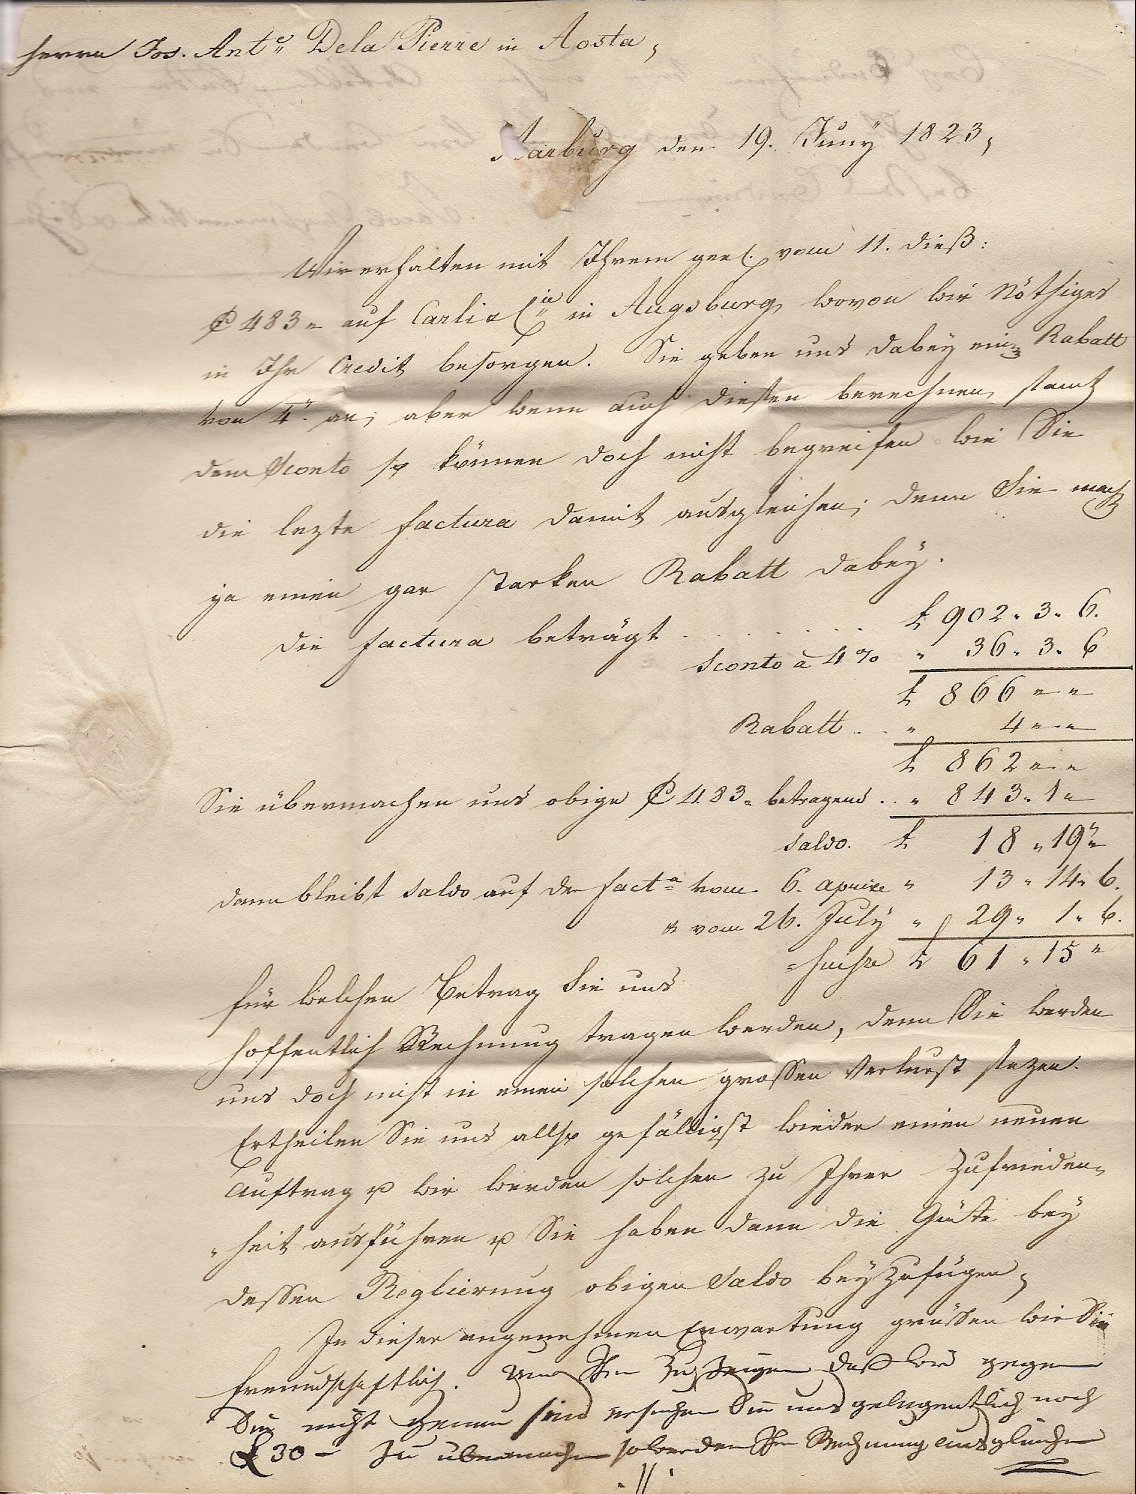 Herrn Jos. Ant. Dela Pierre in Aosta,
Aarburg den 19. Juny 1823,
Wir erhalten mit Ihrem gee(. vom 11. dieß:
483 „ auf Carli & C in Augsburg, wovon wir Nöthiges
in Ihr Credit besorgen. Sie geben uns dabey ein Rabatt
von 4 an; aber wenn auch diesen berechnen, samt
dem Sconto so können doch nicht begreifen wie Sie
die lezte factura damit ausgleichen; denn Sie mach
ja einen gar starken Rabatt dabey.
die factura beträgt . . . . . . . £ 902 „ 3 „ 6.
Sconto à 4 % „ 36 „ 3 „ 6
£ 866 „ „
Rabatt . . „ 4 „ „
£ 862 „ „
Sie übermachen uns obige 483 „ betragend . . „ 843 „ 1 „
Saldo. £ 18 „ 19 „
dann bleibt Saldo auf der fact.ª vom 6. „ 13 „ 14 „ 6.
„ vom 26. July „ 29 „ 1 „ 6.
£ 61 „ 15 „
für welchen Betrag Sie uns
hoffentlich Rechnung tragen werden, denn Sie werden
uns doch nicht in einen solchen grossen Verlurst sezen.
Ertheilen Sie uns also gefälligst wieder einen neuen
Auftrag u wir werden solchen zu Ihrer Zufrieden„
„heit ausführen u Sie haben dann die Güte bey
dessen Reglierung obigen Saldo beyzufügen,
In dieser angenehmen Erwartung grüssen wir Sie
freundschaftlich. Um Ihn zu zeigen daß wir gegen
Sie nicht genau sind ersuchen Sie uns gelegentlich noch
£ 30 – zu übermachen so werden Ihr Rechnung ausgleichen